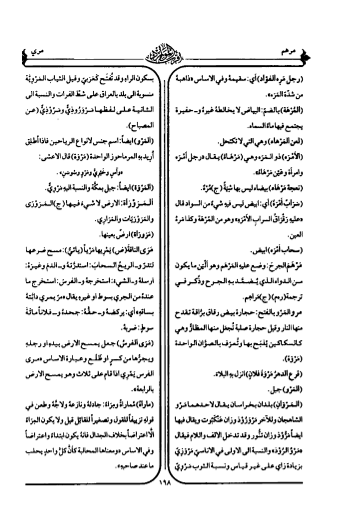 مرهم
مري
(رجل مَرِه الفؤاد) أي: سقيمهُ وفي الاساس «ذاهبهُ
من شدَّة المَرَه».
(المُرْهَة) بالضمّ: البياض لا يخالطهُ غيرهُ و- حفيرة
يجتمع فيها ماءُ السماء.
(لعن المَرْهاء) وهي التي لا تكتحل.
(الأمْرَه) ذو المَرَه وهي (مَرْهاءُ) يقال «رجل أمْرَه
وامرأة وعَيْن مَرْهاءُ».
(نعجة مَرْهاء) بيضاء ليس بها شِيَةٌ (ج) مُرْهٌ.
(سَرابٌ أمْرَه) أي: ابيض ليس فيهِ شيءٌ من السواد قال
العين.
(سحاب أمْرَه) ابيض.
مَرْهَمَ الجرحَ: وضع عليهِ المَرْهم وهو ألْيَن ما يكون
من الدواء الذي يُضمَّد بهِ الجرح وذُكر في
ترجمة (رهم) (ج) مَراهِم.
مرو المَرْو بالفتح: حجارة بيض رقاق برَّاقة تقدح
منها النار وقيل حجارة صلبة تُجعل منها المظارُّ وهي
كالسكاكين يُذبَح بها وتُعرَف بالصوَّان الواحدة
(مَرْوَة).
(قرع الدهرُ مَرْوَةَ فلان) انزل بهِ البلاء.
(المَرْو) جبل.
(المَرْوان) بلدان بخراسان يقال لاحدهما مَرْو
الشاهجان وللآخر مَرْوَرُّوذ وزان عَنْكَبُوت ويقال فيها
ايضاً مَرُّوذ وزان تَنُّور وقد تدخل الالف واللام فيقال
«مَرْو الرُّوذ» والنسبة الى الاولى في الاناسيّ مَرْوَزِيّ
بزيادة زاي على غير قياس ونسبة الثوب مَرْوِيّ
بسكون الراءِ وقد تُفتَح كعَرَبيّ وقيل الثياب المَرْوِيَّة
منسوبة الى بلد بالعراق على شطّ الفرات والنسبة الى
الثانية على لفظها مَرْوَرُوذِيّ ومَرُّوذِيّ (عن
المصباح).
(المَرْو) ايضاً: اسم جنس لانواع الرياحين فاذا أُطلِق
أُريد بهِ المرماحوز الواحدة (مَرْوَة) قال الاعشى:
«وآسٍ وخِيريٌّ ومَرْوٌ وسُوسَنٌ».
(المَرْوَة) ايضاً: جبل بمكَّة والنسبة اليهِ مَرَوِيّ.
المَرَوْراة: الارض لا شيءَ فيها (ج) المَرَوْرَى
والمَرَوْرَيات والمَرارِيّ.
(مَرَوْراة) ارضٌ بعينها.
مَرَى الناقةَ (ض) يَمْرِيها مَرْياً (يائيّ): مسح ضرعها
لتدرَّ و- الريحُ السحابَ: استدرَّتهُ و- الدمَ وغيرَهُ:
ارسلهُ و- الشيءَ: استخرجهُ و- الفرسَ: استخرج ما
عندهُ من الجري بسوط او غيرهِ يقال «مرَّ يمري دابَّتهُ
بساقهِ» أي: يركضهُ و- حقَّهُ: جحدهُ و- فلاناً مائةَ
سوط: ضربهُ.
(مَرَى الفرسُ) جعل يمسح الارض بيدهِ او رجلهِ
ويجرُّها من كسرٍ او ظَلَع وعبارة الاساس «مرى
الفرس يَمْرِي اذا قام على ثلاث وهو يمسح الارض
بالرابعة».
(ماراهُ) مُماراةً ومِراءً: جادلهُ ونازعهُ ولاجَّهُ وطعن في
قولهِ تزييفاً للقول وتصغيراً للقائل قيل ولا يكون المِراءُ
الَّا اعتراضاً بخلاف الجدال فانَّهُ يكون ابتداءً واعتراضاً
وفي الاساس «ومعناها المحالبة كأنَّ كلَّ واحد يحلب
ما عند صاحبهِ».
١٩٨